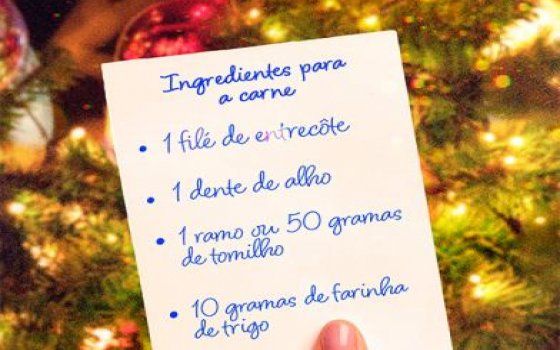 Ingredientes para
a carne
• 1 filé de entrecôte
• 1 dente de alho
• 1 ramo ou 50 gramas
de tomilho
• 10 gramas de farinha
de trigo